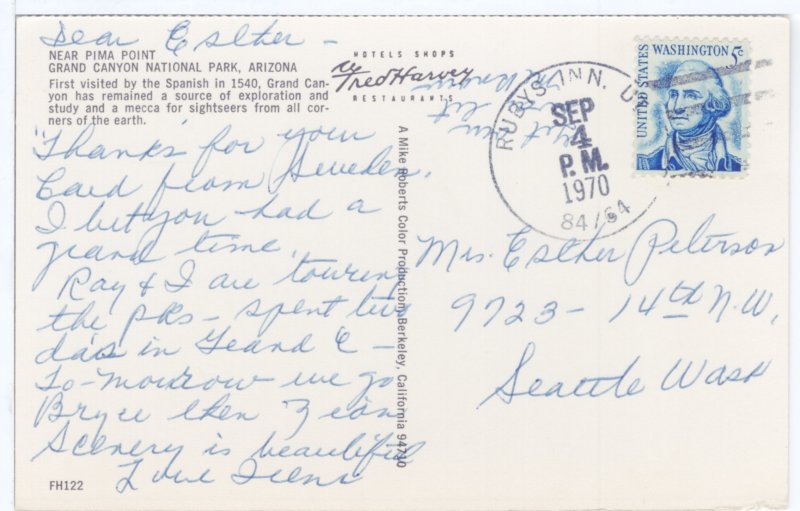 Dear Esther -
NEAR PIMA POINT
GRAND CANYON NATIONAL PARK, ARIZONA
First visited by the Spanish in 1540, Grand Can-
yon has remained a source of exploration and
study and a mecca for sightseers from all cor-
ners of the earth.
"Thanks" for your
Card from Sweden.
I bet you had a
grand time.
Ray & I are touring
the pks - spent two
da's in Grand C -
To-morrow we go
Bryce then Zion
Scenery is beautiful
Love Irene
FH122
HOTELS SHOPS
Fred Harvey
RESTAURANTS
A Mike Roberts Color Production, Berkeley, California 94710
RUBYS INN, U
SEP
4
P.M.
1970
84/64
UNITED STATES
WASHINGTON 5c
Mrs. Esther Peterson
9723 - 14th N.W.
Seattle Wash